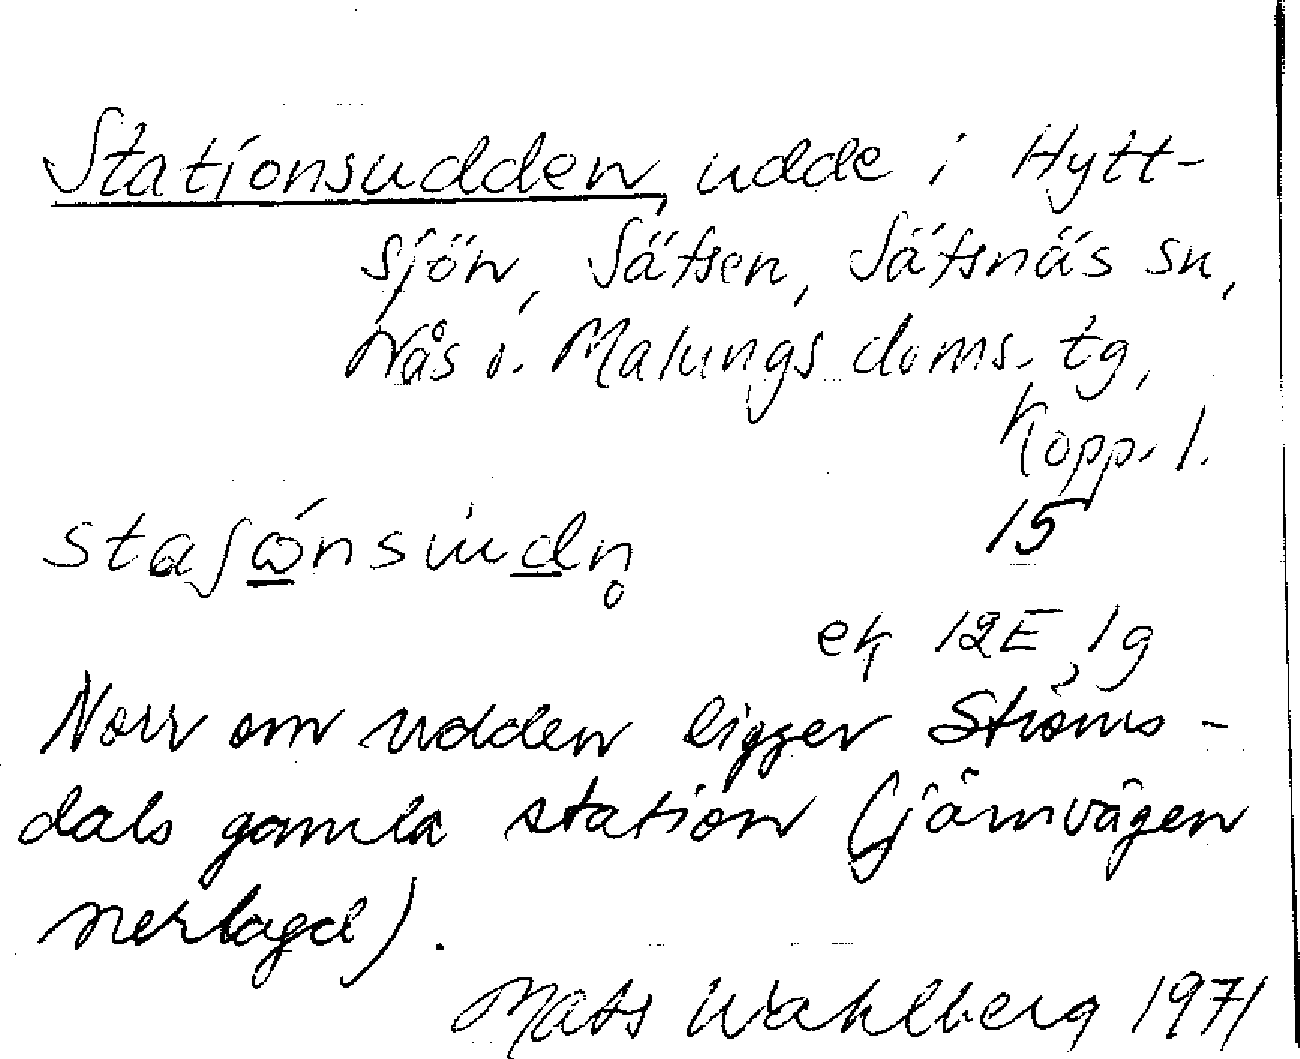 Stationsudden, udde i Hytt-
sjön, Sätsen, Säfsnäs sn,
Nås o. Malungs doms. tg,
Kopp. l.
15
staʃώnsùudn̥
ek 12E, 1g
Norr om udden ligger Ströms-
dals gamla station (järnvägen
nerlagd).
Mats Wahlberg 1971